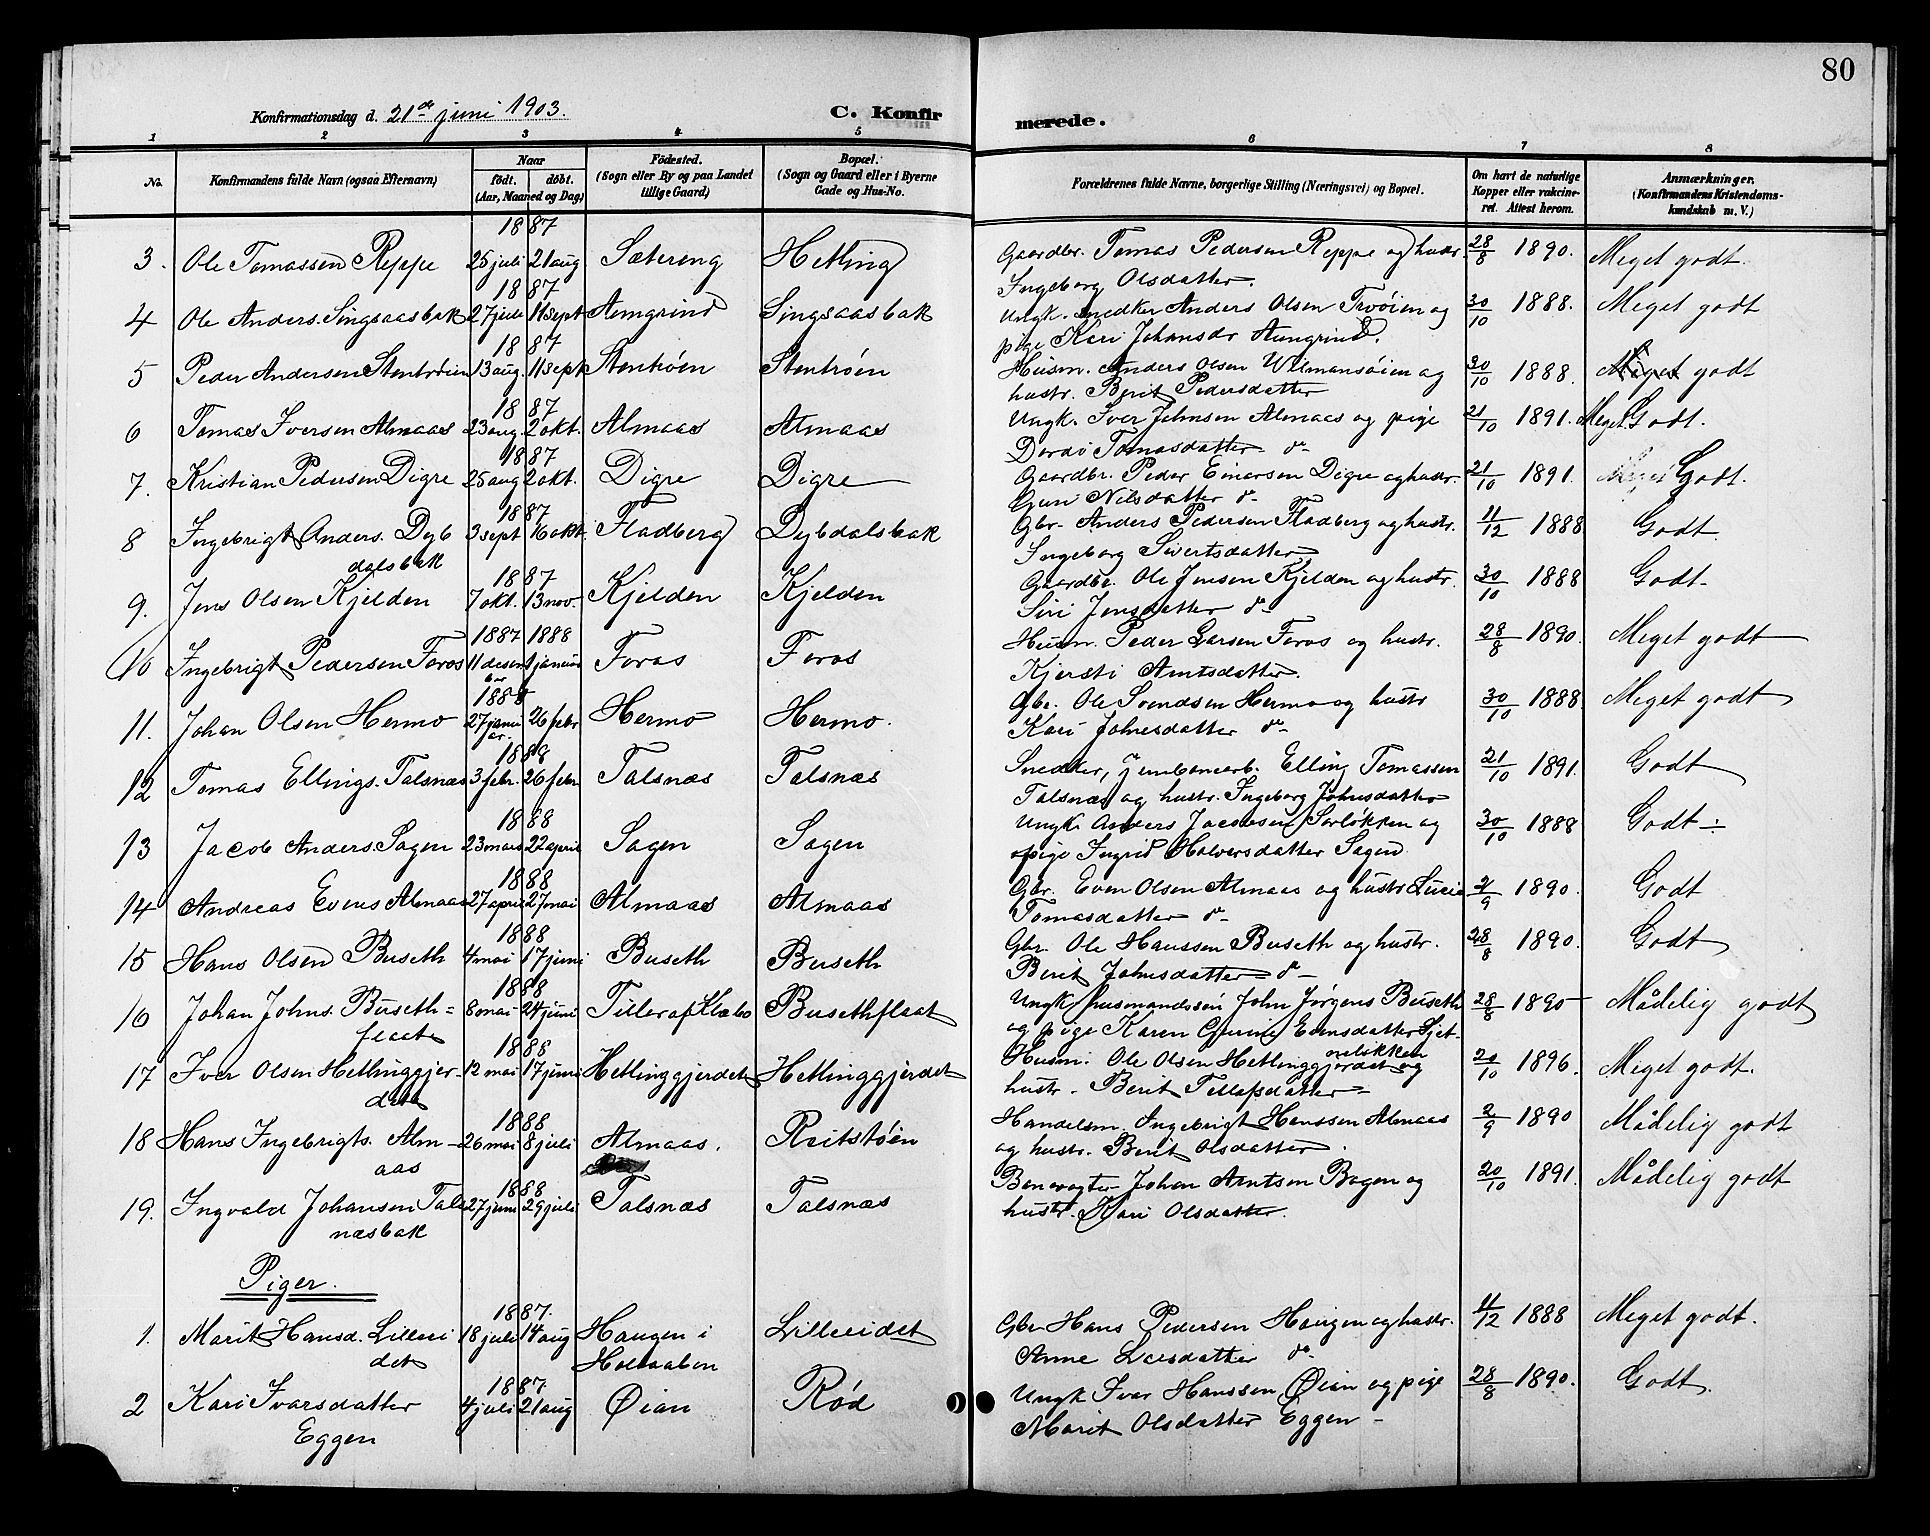 80
Konfirmationsdag d. 21de juni 1903. C. Konfirmerede.
1 2 3 4 5 6 7 8
No. Konfirmandens fulde Navn (ogsaa Efternavn) Naar født. døbt. (Aar, Maaned og Dag) Födested. (Sogn eller By og paa Landet tillige Gaard) Bopæl. (Sogn og Gaard eller i Byerne Gade og Hus-No. Forældrenes fulde Navne, borgerlige Stilling (Næringsvei) og Bopæl. Om havt de naturlige Kopper eller vakcineret. Attest herom. Anmærkninger. (Konfirmandens Kristendomskundskab m. V.)
1887
3. Ole Tomassen Reppe 25 juli 21 aug Sætereng Hetling Gaardbr. Tomas Pedersen Reppe og hustr. 28/8 1890. Meget godt.
Ingeborg Olsdatter.
1887
4 Ole Anders. Singsaasbak 27 juli 11 sept Aungrind Singsaasbak Ungk. snedker Anders Olsen Trøien og 30/10 1888. Meget godt
pige Kari Johansdr Aungrind.
1887
5 Peder Andersen Stentrøen 13 aug. 11 sept Stentrøen Stentrøen Husm. Anders Olsen Wilmansøien og 30/10 1888. Meget godt
hustr. Berit Pedersdatter
1887
6 Tomas Iversen Almaas 23 aug. 2 okt. Almaas Almaas Ungk. Iver Johnsen Almaas og pige 21/10 1891. Meget Godt.
Dordi Tomasdatter do
1887
7. Kristian Pedersen Digre 25 aug 2 okt. Digre Digre Gaardbr. Peder Einersen Digre og hustr. 21/10 1891. Meget Godt.
Guri Nilsdatter do
1887
8 Ingebrigt Anders. Dyb 3 sept 16 okt. Fladberg Dybdalsbak Gbr. Anders Pedersen Fladberg og hustr. 11/12 1888 Godt
dalsbak Ingeborg Sivertsdatter
1887
9. Jens Olsen Kjelden 7 okt. 13 nov. Kjelden Kjelden Gaardbr. Ole Jensen Kjelden og hustr. 30/10 1888 Godt
Siri Jensdatter do
1887 1888
10 Ingebrigt Pedersen Foros 11 desember 1 januar Foros Foros Husm. Peder Larsen Foros og hustr. 28/8 1890. Meget godt
Kjersti Arntsdatter.
1888
11. Johan Olsen Hermo 27 januar. 26 febr Hermo Hermo. Gbr. Ole Svendsen Hermo og hustr 30/10 1888. Meget godt
Kari Johnsdatter do
1888
12 Tomas Ellings. Talsnæs 3 febr. 26 febr Talsnæs Talsnæs Snedker, jernbanearb. Elling Tomassen 21/10 1891. Godt
Talsnæs og hustr. Ingeborg Johnsdatter
1888
13 Jacob Anders. Sagen 23 mars 22 april Sagen Sagen Ungk. Anders Jacobsen Sørløkken og 30/10 1888 Godt
pige Ingrid Halversdatter Sagen.
1888
14 Andreas Evens Almaas 27 april 27 mai Almaas Almaas Gbr. Even Olsen Almaas og hustr Lucie 2/9 1890. Godt
Tomasdatter do
1888
15 Hans Olsen Buseth 4 mai 17 juni Buseth Buseth Gbr. Ole Hanssen Buseth og hustr. 28/8 1890. Godt
Berit Johnsdatter do
1888
16 Johan Johns. Buseth= 8 mai 24 juni Tiller af Klæbo Busethflaat Ungk, husmandssøn John Jørgens Buseth 28/8 1890 Mådelig godt
flaat og pige Karen Gurine Evensdatter Sjet-
1888 neløkken
17 Iver Olsen Hetlinggjer- 12 mai 17 juni Hetlinggjerdet Hetlinggjerdet Husm. Ole Olsen Hetlinggjerdet og 20/10 1896. Meget godt.
det hustr. Berit Tellefsdatter
1888
18 Hans Ingebrigts. Alm- 26 mai 8 juli Almaas. Reitstøen Handelsm. Ingebrigt Hanssen Almaas 2/9 1890 Mådelig godt
aas og hustr. Berit Olsdatter
1888
19. Ingvald Johansen Tals 27 juni 29 juli Talsnæs Talsnæs Banevogter Johan Arntsen Bagen og 20/10 1891. Mådelig godt
næsbak hustr. Kari Olsdatter.
Piger.
1887.
1. Marit Hansd. Lilleei 18 juli 14 aug Haugen i Lilleeidet Gbr Hans Pedersen Haugen og hustr. 11/12 1888 Meget godt.
det Holtaalen Anne Larsdatter do
1887
2 Kari Ivarsdatter 4 juli 21 aug Øian Rød Ungk Ivar Hanssen Øian og pige 28/8 1890. Godt.
Eggen Marit Olsdatter Eggen